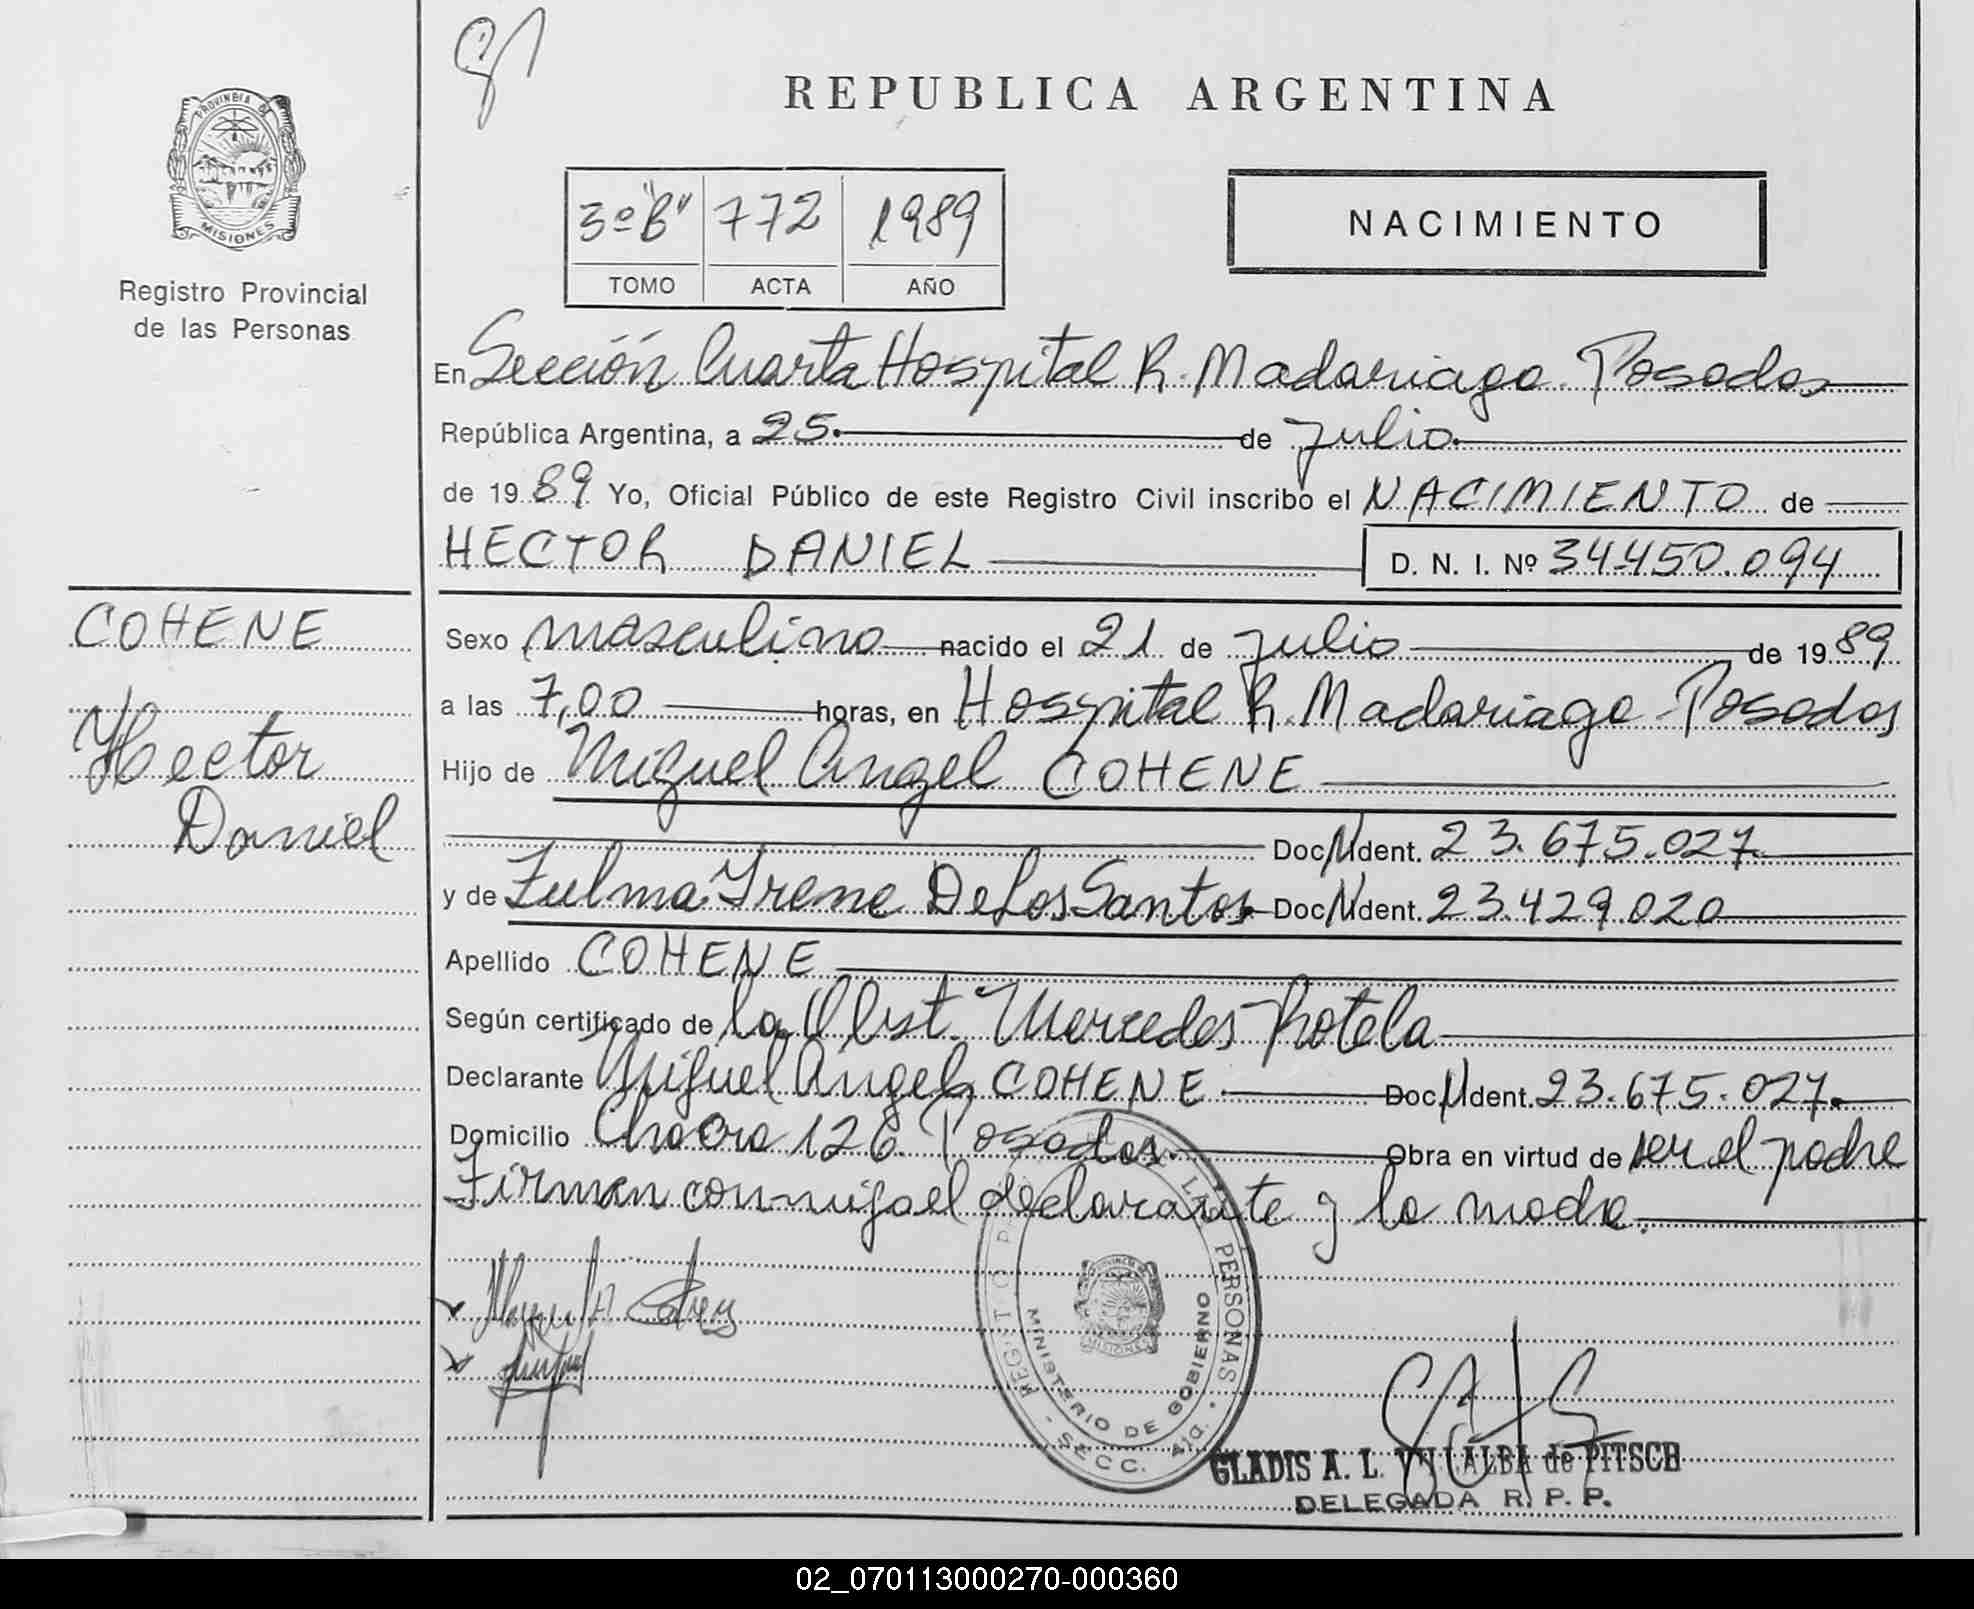 REPUBLICA ARGENTINA
PROVINCIA DE
MISIONES
Registro Provincial
de las Personas
3º "B" 772 1989
TOMO ACTA AÑO
NACIMIENTO
En Sección Cuarta Hospital R. Madariaga. Posadas
República Argentina, a 25. de julio.
de 19 89 Yo, Oficial Público de este Registro Civil inscribo el NACIMIENTO de
HECTOR DANIEL D. N. I. Nº 34.450.094
COHENE
Hector
Daniel
Sexo masculino nacido el 21 de julio de 19 89
a las 7,00 horas, en Hospital R. Madariaga - Posadas
Hijo de Miguel Angel COHENE
Doc. N. Ident. 23.675.027
y de Zulma Irene De Los Santos Doc. N. Ident. 23.429.020
Apellido COHENE
Según certificado de la Obst. Mercedes Rotela
Declarante Miguel Angel COHENE Doc. N. Ident. 23.675.027.
Domicilio Chacra 126. Posadas. Obra en virtud de ser el padre
Firman conmigo el declarante y la madre.
LAS PERSONAS
MINISTERIO DE GOBIERNO
SECC. 4ta.
GLADIS A. L. VILLALBA de PITSCH
DELEGADA R. P. P.
02_070113000270-000360